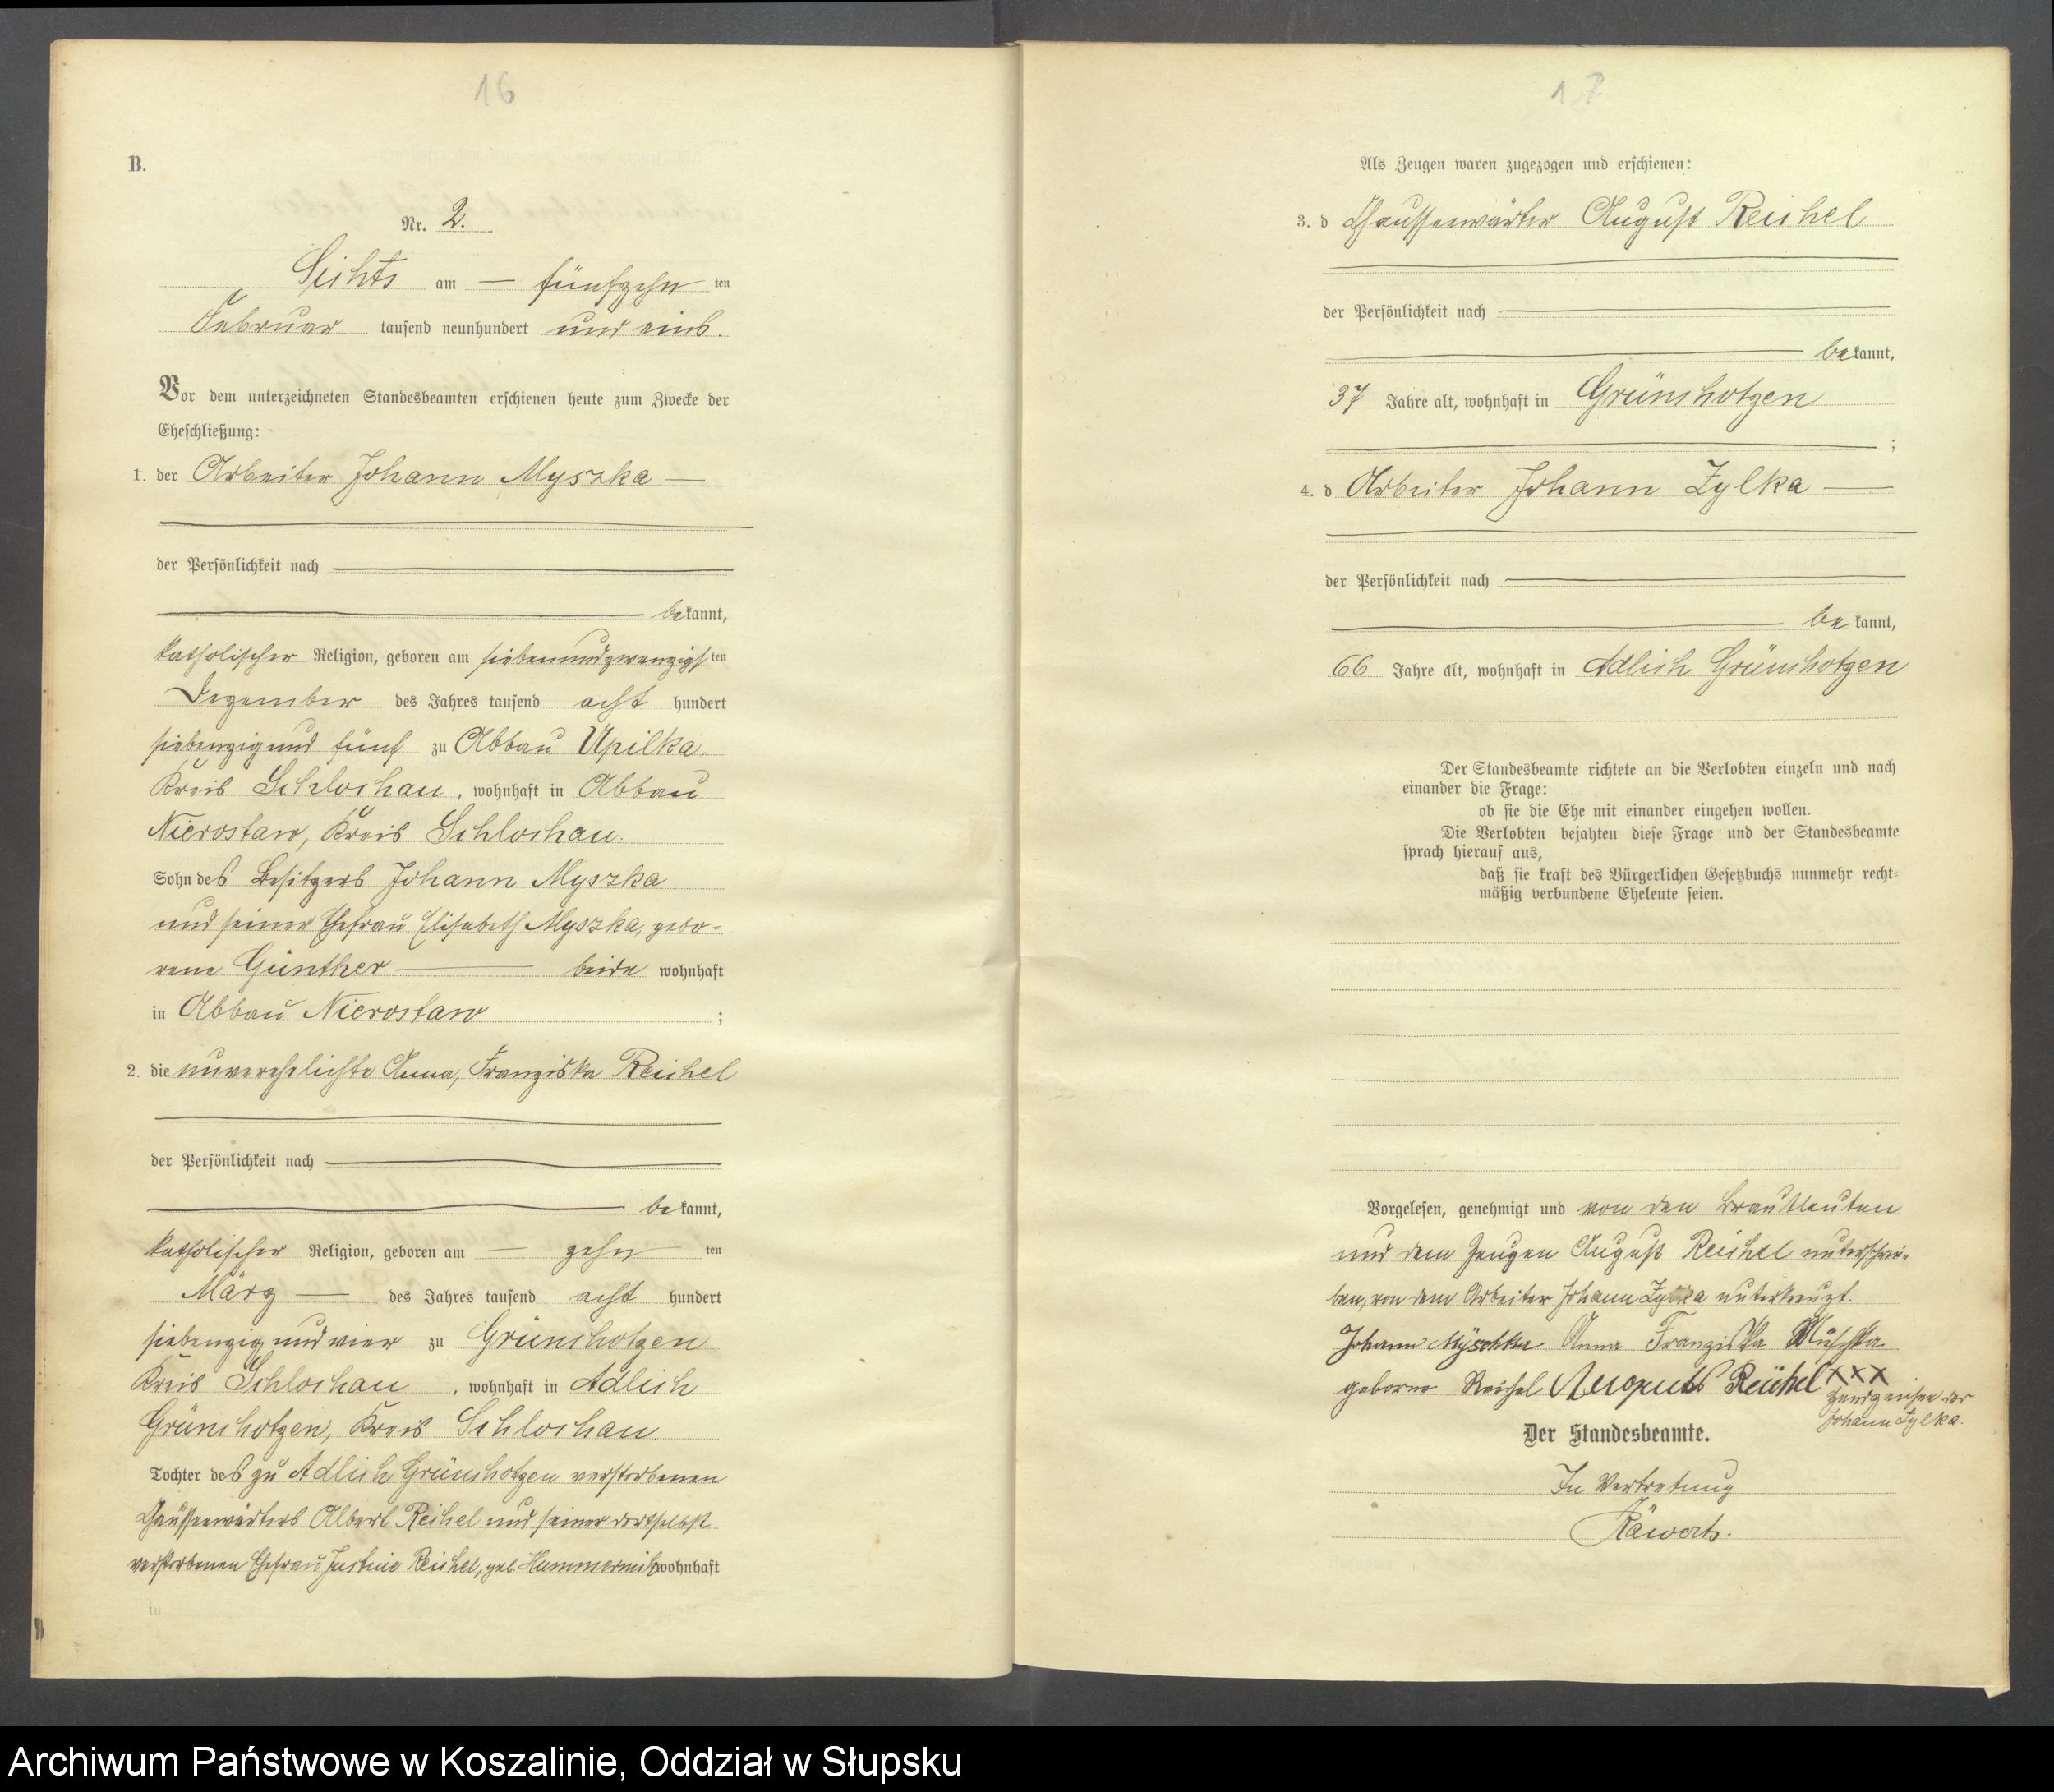 16
B.
Nr. 2.
Lichts am — fünfzehn ten
Februar tausend neunhundert und eins.
Vor dem unterzeichneten Standesbeamten erschienen heute zum Zwecke der
Eheschließung:
1. der Arbeiter Johann Myszka —
der Persönlichkeit nach
bekannt,
katholischer Religion, geboren am siebenundzwanzigsten
Dezember des Jahres tausend acht hundert
siebenzig und fünf zu Abbau Upilka
Kreis Schlochau, wohnhaft in Abbau
Nierostaw, Kreis Schlochau.
Sohn des Besitzers Johann Myszka
und seiner Ehefrau Elisabeth Myszka, gebo-
rene Günther — beide wohnhaft
in Abbau Nierostaw ;
2. die unverehelichte Anna, Franziska Reichel
der Persönlichkeit nach
bekannt,
katholischer Religion, geboren am — zehn ten
März — des Jahres tausend acht hundert
siebenzig und vier zu Grünchotzen
Kreis Schlochau, wohnhaft in Adlich
Grünchotzen, Kreis Schlochau.
Tochter des zu Adlich Grünchotzen verstorbenen
Chausseewärters Albert Reichel und seiner dortselbst
verstorbenen Ehefrau Justine Reichel, geb. wohnhaft
in
17
Als Zeugen waren zugezogen und erschienen:
3. d Chausseewärter August Reichel
der Persönlichkeit nach
bekannt,
37 Jahre alt, wohnhaft in Grünchotzen
;
4. d Arbeiter Johann Zylka —
der Persönlichkeit nach
bekannt,
66 Jahre alt, wohnhaft in Adlich Grünchotzen
Der Standesbeamte richtete an die Verlobten einzeln und nach
einander die Frage:
ob sie die Ehe mit einander eingehen wollen.
Die Verlobten bejahten diese Frage und der Standesbeamte
sprach hierauf aus,
daß sie kraft des Bürgerlichen Gesetzbuchs nunmehr recht-
mäßig verbundene Eheleute seien.
Vorgelesen, genehmigt und von den Brautleuten
und dem Zeugen August Reichel unterschrie-
ben, von dem Arbeiter Johann Zylka unterkreuzt.
Johann Myschka Anna Franziska Muschka
geborne Reichel Reichel XXX
Handzeichen des
Johann Zylka.
Der Standesbeamte.
In Vertretung
Räwerts.
Archiwum Państwowe w Koszalinie, Oddział w Słupsku